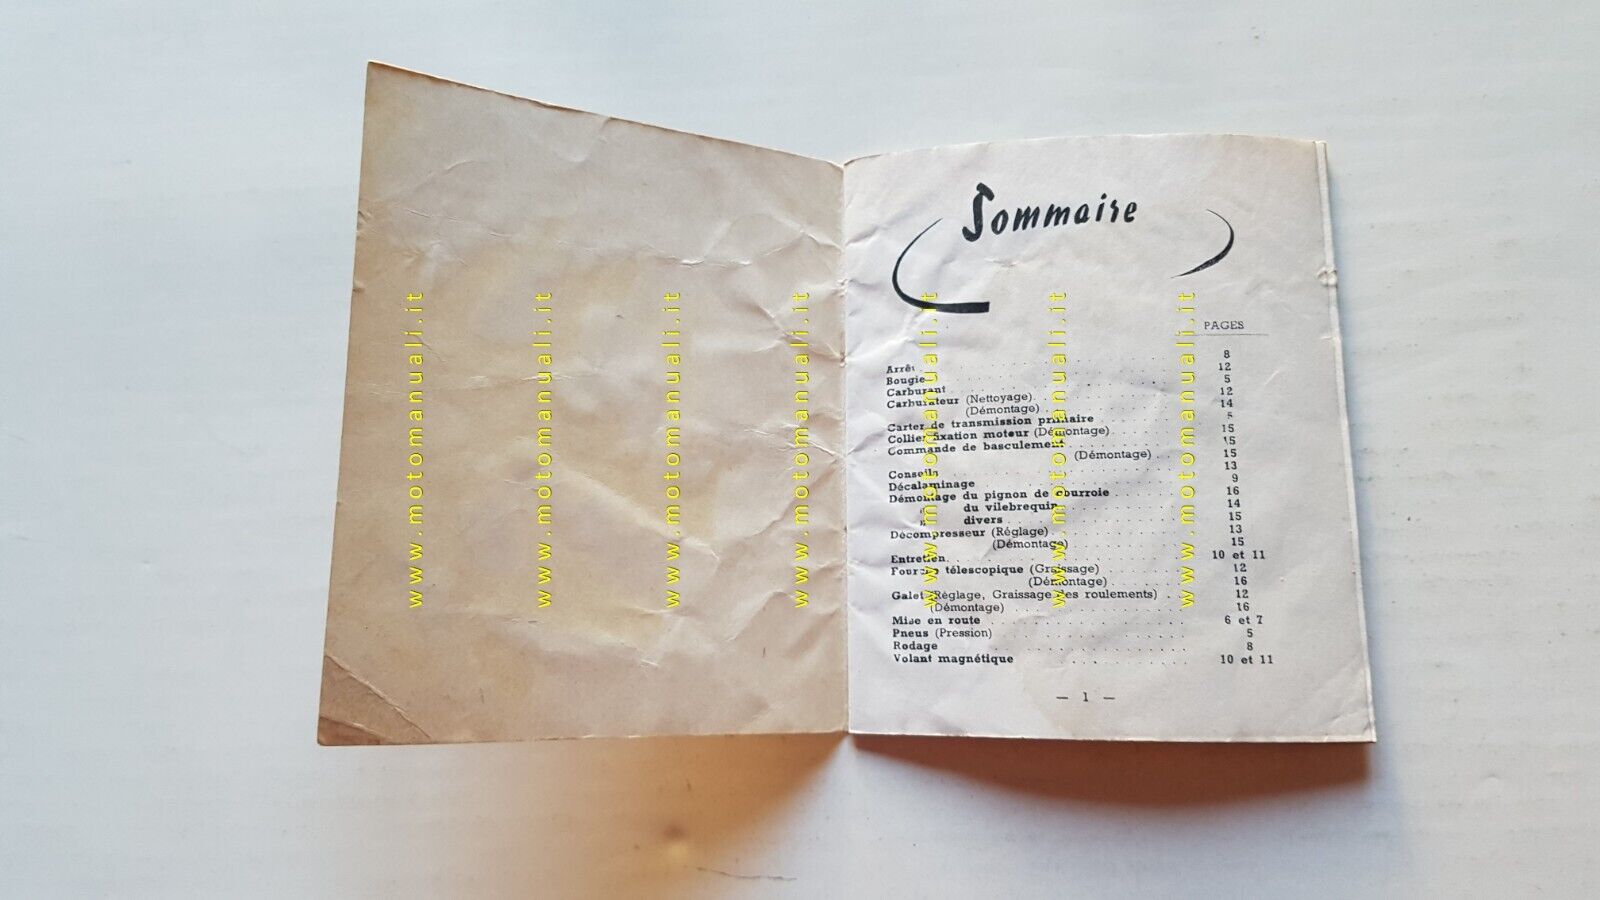 Sommaire
PAGES
Arrêt 8
Bougie 12
Carburant 5
Carburateur (Nettoyage) 12
(Démontage) 14
Carter de transmission primaire 5
Collier fixation moteur (Démontage) 15
Commande de basculement 15
(Démontage) 15
Conseils 13
Décalaminage 9
Démontage du pignon de courroie 16
» du vilebrequin 14
» divers 15
Décompresseur (Réglage) 13
(Démontage) 15
Entretien 10 et 11
Fourche télescopique (Graissage) 12
(Démontage) 16
Galet (Réglage, Graissage des roulements) 12
(Démontage) 16
Mise en route 6 et 7
Pneus (Pression) 5
Rodage 8
Volant magnétique 10 et 11
— 1 —
www.motomanuali.it
www.motomanuali.it
www.motomanuali.it
www.motomanuali.it
www.motomanuali.it
www.motomanuali.it
www.motomanuali.it